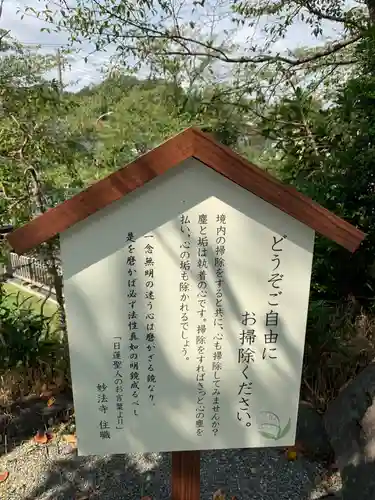 どうぞご自由に
お掃除ください。
境内の掃除をすると、心も掃除してみませんか?
塵と垢は執着の心です。掃除をすればきっと心の塵を
払い、心の垢も除かれるでしょう。
一念無明の迷う心は磨かざる鏡なり、
是を磨かば必ず法性真如の明鏡と成るべし
「日蓮聖人のお言葉より」
妙法寺 住職